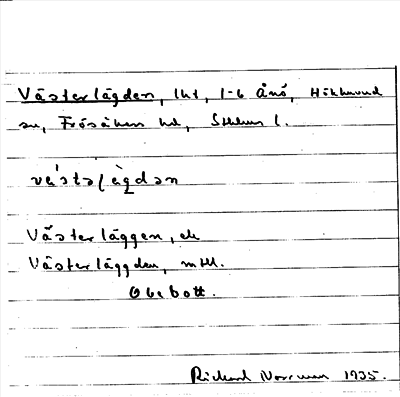 Västerlägden, lht, 1-6 Ånö, Hökhuvud
sn, Frösåkers hd, Sthlms l.
Västerläggen, ek
Västerläggden, mtl.
Obebott.
Rickard Norrman 1935.